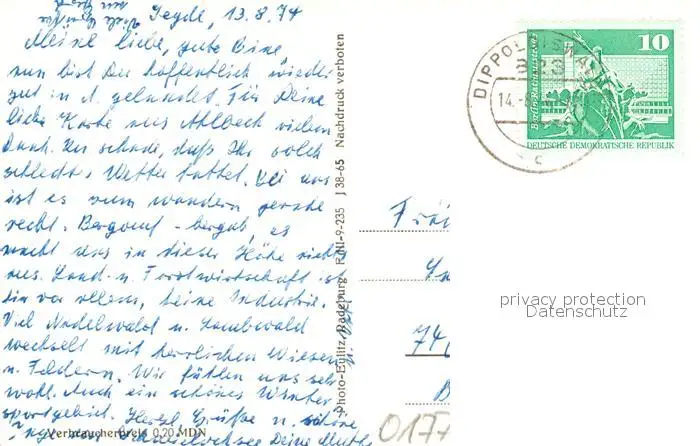 Seyde, 13.8.74
Meine liebe, gute Bine
nun bist Du hoffentlich wieder
gut in A. gelandet. Für Deine
liebe Karte aus Ahlbeck vielen
Dank. Zu schade, daß Ihr solch
schlechtes Wetter hattet. Bei uns
ist es zum wandern gerade
recht. Bergauf - bergab, es
macht uns in dieser Höhe nichts
aus. Land- u. Forstwirtschaft ist
hier vor allem, keine Industrie.
Viel Nadelwald u. Laubwald
wechselt mit herrlichen Wiesen
u. Feldern. Wir fühlen uns sehr
wohl. Auch ein schönes Winter
sportgebiet. Herzl. Grüße u. schöne
Deine Mutti
Verbraucherpreis 0,20 MDN
Photo-Eulitz, Radeburg R III-9-235 J 38-65 Nachdruck verboten
DIPPOLDISWALDE
14.-8
c
10
Berlin, Rathausstraße
DEUTSCHE DEMOKRATISCHE REPUBLIK
Frä
74
privacy protection
Datenschutz
0177